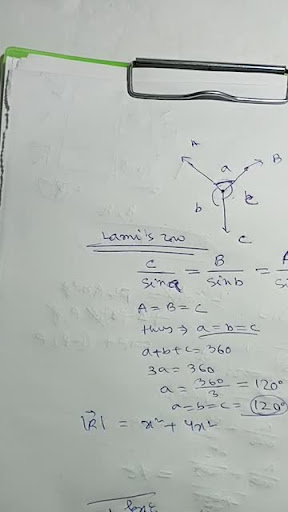 A
a
B
b
c
C
Lami's
C/sina = B/sinb = A/si
A = B = C
thus → a = b = c
a+b+c = 360
3a = 360
a = 360/3 = 120°
a=b=c = 120°
|R| = x² + 4x²